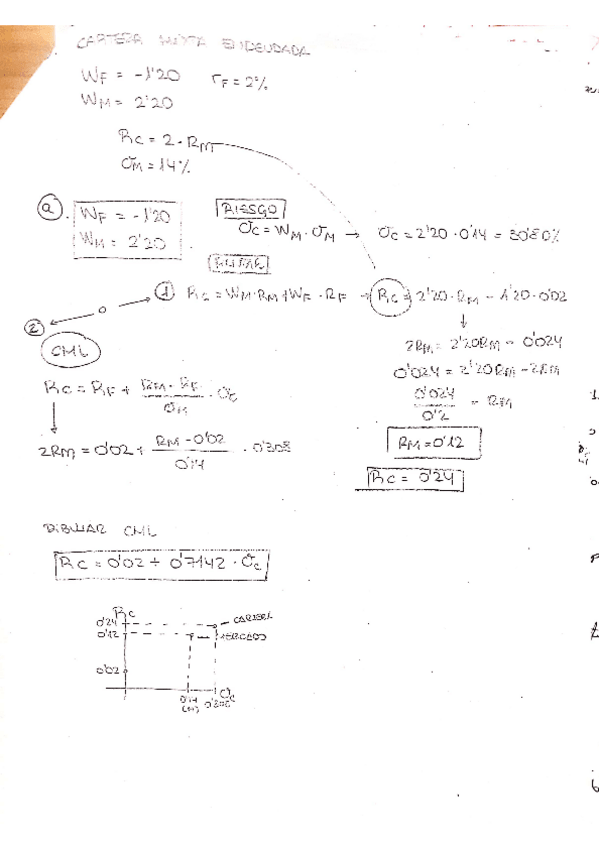 CARTERA MIXTA ENDEUDADA
WF = -1'20 rF = 2%
WM = 2'20
RC = 2 · RM
σM = 14%
a) WF = -1'20
WM = 2'20
RIESGO
σC = WM · σM → σC = 2'20 · 0'14 = 30'80%
① RC = WM · RM + WF · RF → RC = 2'20 · RM - 1'20 · 0'02
2RM = 2'20RM - 0'024
0'024 = 2'20RM - 2RM
0'024 / 0'2 = RM
RM = 0'12
RC = 0'24
o
②
CML
RC = RF + (RM - RF) / σM · σC
2RM = 0'02 + (RM - 0'02) / 0'14 · 0'308
DIBUJAR CML
RC = 0'02 + 0'7142 · σC
RC
0'24 CARTERA
0'12 MERCADO
0'02
0'14 0'308 σC
(M)